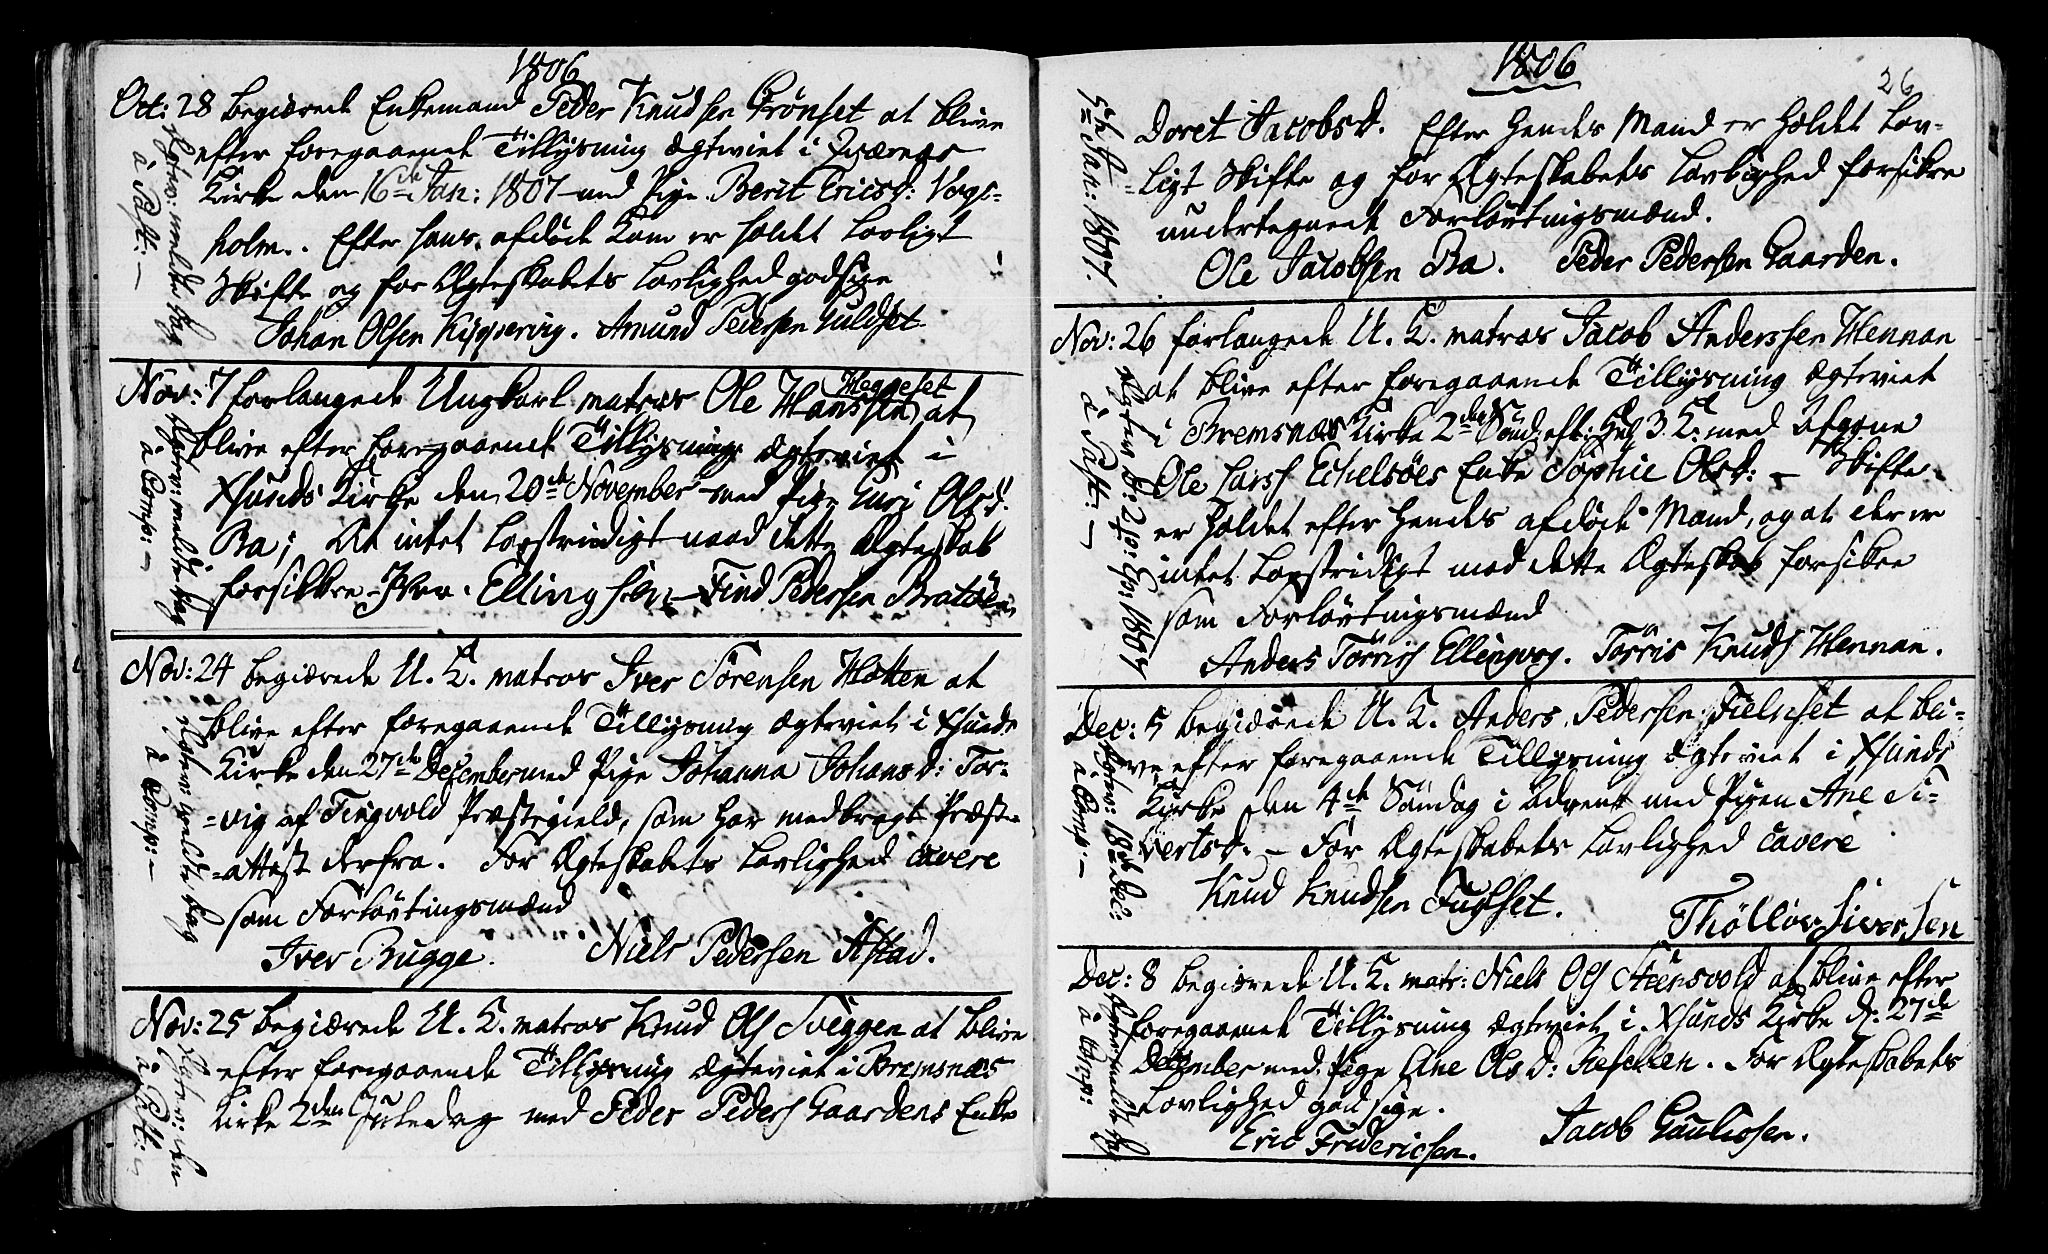 1806
Oct: 28 begiærede Enkemand Peder Knudsen Brönset at blive
efter foregaaende Tillysning ægteviet i Qværnæs
Kirke den 16de Jan: 1807 med Pige Berit Ericsd: Vogs-
holm. Efter hans afdöde Kone er holdet Lovligt
Skifte og for Ægteskabets Lovlighed godsige
Johan Olsen Amund Pedersen Guldset
Ægtev: meldte Dag
à Past: –
Nov: 7 forlangede Ungkarl matros Ole Hanssen Heggeset at
blive efter foregaaende Tillysning ægteviet i
Xsunds Kirke den 20de November med Pige Guri Olsd:
Ba; At intet Lovstridigt mod dette Ægteskab
forsikkre Iver Ellingsen – Find Pedersen Bratöen
Ægtev: meldte Dag
à Comp: –
Nov: 24 begiærede U. K. matros Iver Sörensen Hatten at
blive efter foregaaende Tillysning ægteviet i Xsunds
Kirke den 27de December med Pige Johanna Johansd: Tor-
-vig af Tingvold Præstegield, som har medbragt Præste
-attest derfra. For Ægteskabets Lovlighed cavere
som Forlovtningsmænd
Iver Brugge. Niels Pedersen Astad.
Ægtev: meldte Dag
à Comp: –
Nov: 25 begiærede U. K. matros Knud Ols Sveggen at blive
efter foregaaende Tillysning ægteviet i Bremsnæs
Kirke 2den Juledag med Peder Peders Gaardens Enke
Ægtev: den
à Past: –
1806
26
Doret Jacobsd. Efter hendes Mand er holdet Lov-
-ligt Skifte og for Ægteskabets Lovlighed forsikre
undertegnede Forlovtningsmænd.
Ole Jacobsen Ba. Peder Pedersen Gaarden.
5te Jan: 1807.
Nov: 26 forlangede U. K. matros Jacob Anderssen Hennan
at blive efter foregaaende Tillysning ægteviet
i Bremsnæs Kirke 2den Sönd: eft: Hel: 3 K: med Afgane
Ole Larss Echelsöes Enke Sophie Olsd: – Skifte
er holdet efter hendes afdöde Mand, og at der er
intet Lovstridigt mod dette Ægteskab forsikre
som Forlovtningsmænd
Anders Törriss Ellingvog. Törris Knuds Hennan.
à Past: –
Dec: 5 begiærede U. K. Anders Pedersen Fielnset at bli-
ve efter foregaaende Tillysning ægteviet i Xsunds
Kirke den 4de Söndag i Advent med Pigen Ane Si-
vertsd. – For Ægteskabets Lovlighed cavere
Knud Knudsen Fugset. Thöllov Siversen
Ægtev: 18de Dec:
à Comp: –
Dec: 8 begiærede U. K. matr: Niels Ols Steensvold at blive efter
foregaaende Tillysning ægteviet i Xsunds Kirke d: 27de
December med Pige Ane Olsd: For Ægteskabets
Lovlighed godsige.
Eric Friderichsen. Jacob
Ægtev: meldte Dag
à Comp: